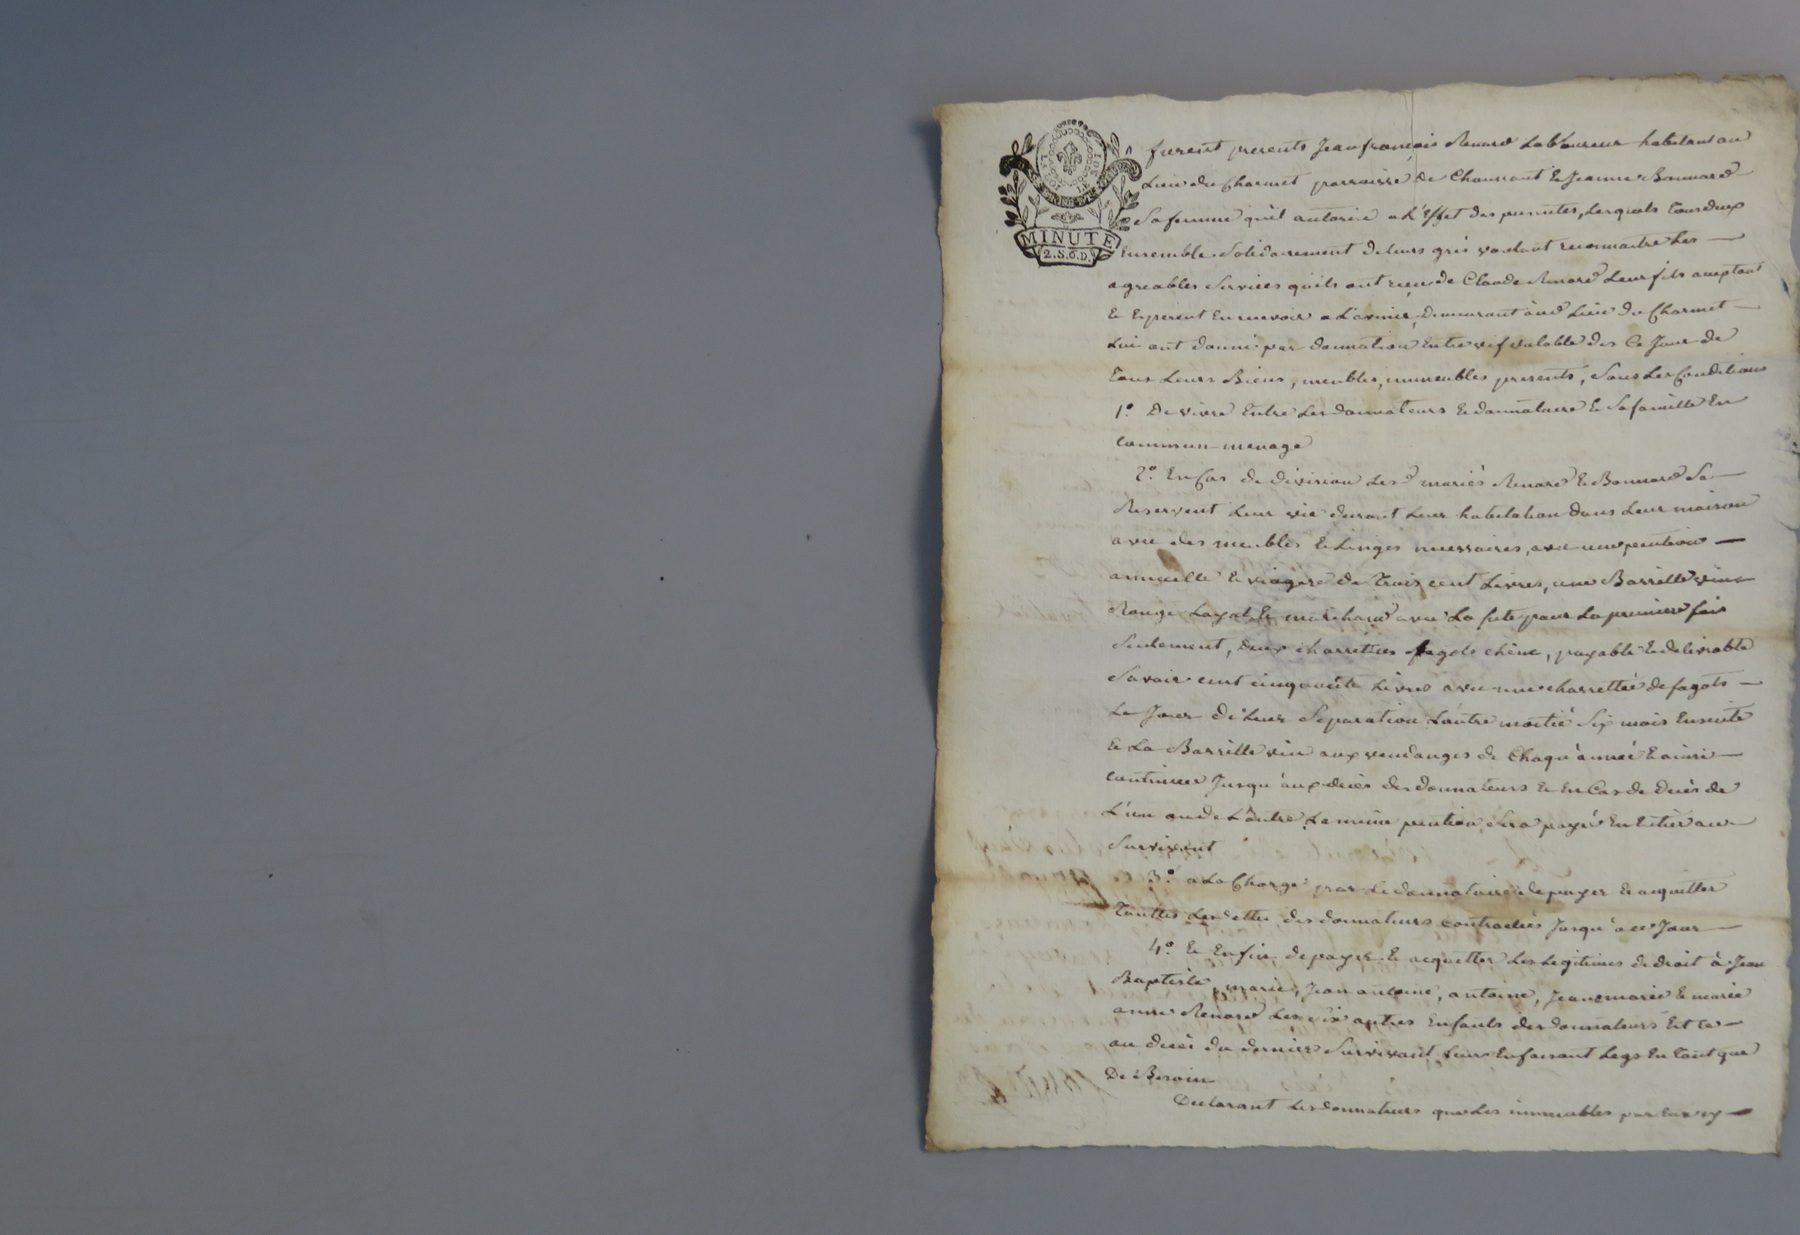 LA LOI LE ROI
MINUTE
2.S.6.D.
furent presents Jean françois Renard Laboureur habitant au
Lieu du Charmet parroisse de Chaussant & Jeanne Bonnard
Sa femme qu'il autorise a L'effet des presentes, Lesquels tous deux
Ensemble Solidairement de leurs grés voulant reconnaitre Les
agreables Services quils ont reçu de Claude Renard Leur fils acceptant
& Esperent En recevoir a L'avenir, demeurant aud Lieu du Charmet
Lui ont donné par donnation Entre vif valable des Ce Jour de
tous Leurs Biens, meubles, immeubles presents, Sous Les Conditions
1° De vivre Entre Les donnateurs & donnataire & Sa famille En
commun menage
2° En Cas de division Les d mariés Renard & Bonnard Se
Reservent Leur vie durant Leur habitation dans Leur maison
avec des meubles & Linges necessaires, avec une pention
annuelle & viagere de Trois cent Livres, une Barrille vin
Rouge Loyal & marchand avec La fute pour La premiere fois
Seulement, deux charrettées fagots chêne, payable & delivrable
Savoir cent cinquante Livres avec une charrettée de fagots
Le Jour de Leur Separation L'autre moitié Six mois Ensuite
& La Barrille vin aux vendanges de Chaqu'année & ainsi
continuer Jusqu'aux décès des donnateurs & En Cas de Décès de
L'un ou de L'autre La même pention Sera payé En Entier au
Survivant
3° a La Charge par Le donnataire de payer & acquitter
Touttes Les dettes des donnateurs contractées Jusqu'à ce Jour
4° & Enfin de payer & acquitter Les Legitimes de droit à Jean
Baptiste, marie, Jean antoine, antoine, Jeanne marie & marie
anne Renard Les Six autres Enfants des donnateurs Et ce
au décès du dernier Survivant Leurs En faisant Legs En tant que
De Besoin
Declarant Les donnateurs que Les immeubles par Eux cy